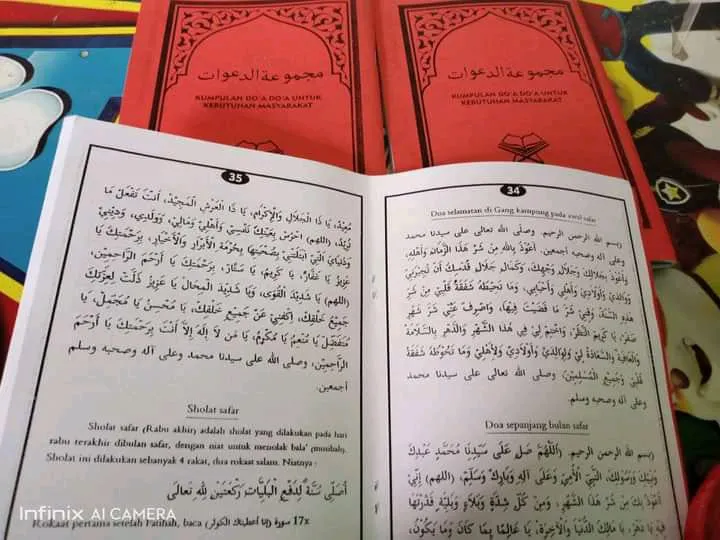 مجموعة الدعوات
KUMPULAN DO'A DO'A UNTUK
KEBUTUHAN MASYARAKAT
مجموعة الدعوات
KUMPULAN DO'A DO'A UNTUK
KEBUTUHAN MASYARAKAT
34
Doa selamatan di Gang kampung pada awal safar
بسم الله الرحمن الرحيم. وصلى الله تعالى على سيدنا محمد
وعلى آله وصحبه أجمعين. أَعُوْذُ بِاللهِ مِنْ شَرِّ هَذَا الزَّمَانِ وَأَهْلِهِ،
وَأَعُوْذُ بِجَلَالِكَ وَجَلَالِ وَجْهِكَ، وَكَمَالِ جَلَالِ قُدْسِكَ أَنْ تُجِيْرَنِيْ
وَوَالِدَيَّ وَأَوْلَادِيْ وَأَهْلِيْ وَأَحِبَّائِيْ، وَمَا تُحِيْطُهُ شَفَقَةُ قَلْبِيْ مِنْ شَرِّ
هَذِهِ السَّنَةِ وَقِنِيْ شَرَّ مَا قَضَيْتَ فِيْهَا، وَاصْرِفْ عَنِّيْ شَرَّ شَهْرِ
صَفَرَ، يَا كَرِيْمَ النَّظَرِ، وَاخْتِمْ لِيْ فِيْ هَذَا الشَّهْرِ وَالدَّهْرِ بِالسَّلَامَةِ
وَالْعَافِيَةِ وَالسَّعَادَةِ لِيْ وَلِوَالِدَيَّ وَأَوْلَادِيْ وَلِأَهْلِيْ وَمَا تَحُوْطُهُ شَفَقَةُ
قَلْبِيْ وَجَمِيْعِ الْمُسْلِمِيْنَ، وصلى الله تعالى على سيدنا محمد
وعلى آله وصحبه وسلم.
Doa sepanjang bulan safar
بسم الله الرحمن الرحيم. (اَللّٰهُمَّ صَلِّ عَلَى سَيِّدِنَا مُحَمَّدٍ عَبْدِكَ
وَنَبِيِّكَ وَرَسُوْلِكَ، النَّبِيِّ الْأُمِّيِّ وَعَلَى آلِهِ وَبَارِكْ وَسَلِّمْ، (اللهم) إِنِّيْ
أَعُوْذُ بِكَ مِنْ شَرِّ هَذَا الشَّهْرِ، وَمِنْ كُلِّ شِدَّةٍ وَبَلَاءٍ وَبَلِيَّةٍ قَدَّرْتَهَا
فِيْهِ يَا دَهْرُ، يَا مَالِكَ الدُّنْيَا وَالْآخِرَةِ، يَا عَالِمًا بِمَا كَانَ وَمَا يَكُوْنُ،
35
مُعِيْدُ، يَا ذَا الْجَلَالِ وَالْإِكْرَامِ، يَا ذَا الْعَرْشِ الْمَجِيْدِ، أَنْتَ تَفْعَلُ مَا
تُرِيْدُ، (اللهم) احْرُسْ بِعَيْنِكَ نَفْسِيْ وَأَهْلِيْ وَمَالِيْ، وَوَلَدِيْ، وَدِيْنِيْ
وَدُنْيَايَ الَّتِيْ ابْتَلَيْتَنِيْ بِصُحْبَتِهَا بِحُرْمَةِ الْأَبْرَارِ وَالْأَخْيَارِ، بِرَحْمَتِكَ يَا
عَزِيْزُ يَا غَفَّارُ، يَا كَرِيْمُ، يَا سَتَّارُ، بِرَحْمَتِكَ يَا أَرْحَمَ الرَّاحِمِيْنَ،
(اللهم) يَا شَدِيْدَ الْقُوَى، وَيَا شَدِيْدَ الْمِحَالِ يَا عَزِيْزُ ذَلَّتْ لِعِزَّتِكَ
جَمِيْعُ خَلْقِكَ، اِكْفِنِيْ عَنْ جَمِيْعِ خَلْقِكَ، يَا مُحْسِنُ يَا مُجَمِّلُ، يَا
مُتَفَضِّلُ يَا مُنْعِمُ يَا مُكْرِمُ، يَا مَنْ لَا إِلَهَ إِلَّا أَنْتَ بِرَحْمَتِكَ يَا أَرْحَمَ
الرَّاحِمِيْنَ، وصلى الله على سيدنا محمد وعلى آله وصحبه وسلم
أجمعين.
Sholat safar
Sholat safar (Rabu akhir) adalah sholat yang dilakukan pada hari
rabu terakhir dibulan safar, dengan niat untuk menolak bala' (musibah).
Sholat ini dilakukan sebanyak 4 rakat, dua rokaat salam. Niatnya :
أُصَلِّيْ سُنَّةً لِدَفْعِ الْبَلِيَّاتِ رَكْعَتَيْنِ لِلّٰهِ تَعَالَى
Rokaat pertama setelah Fatihah, baca (إنا أعطيناك الكوثر) سورة 17x
Infinix AI CAMERA